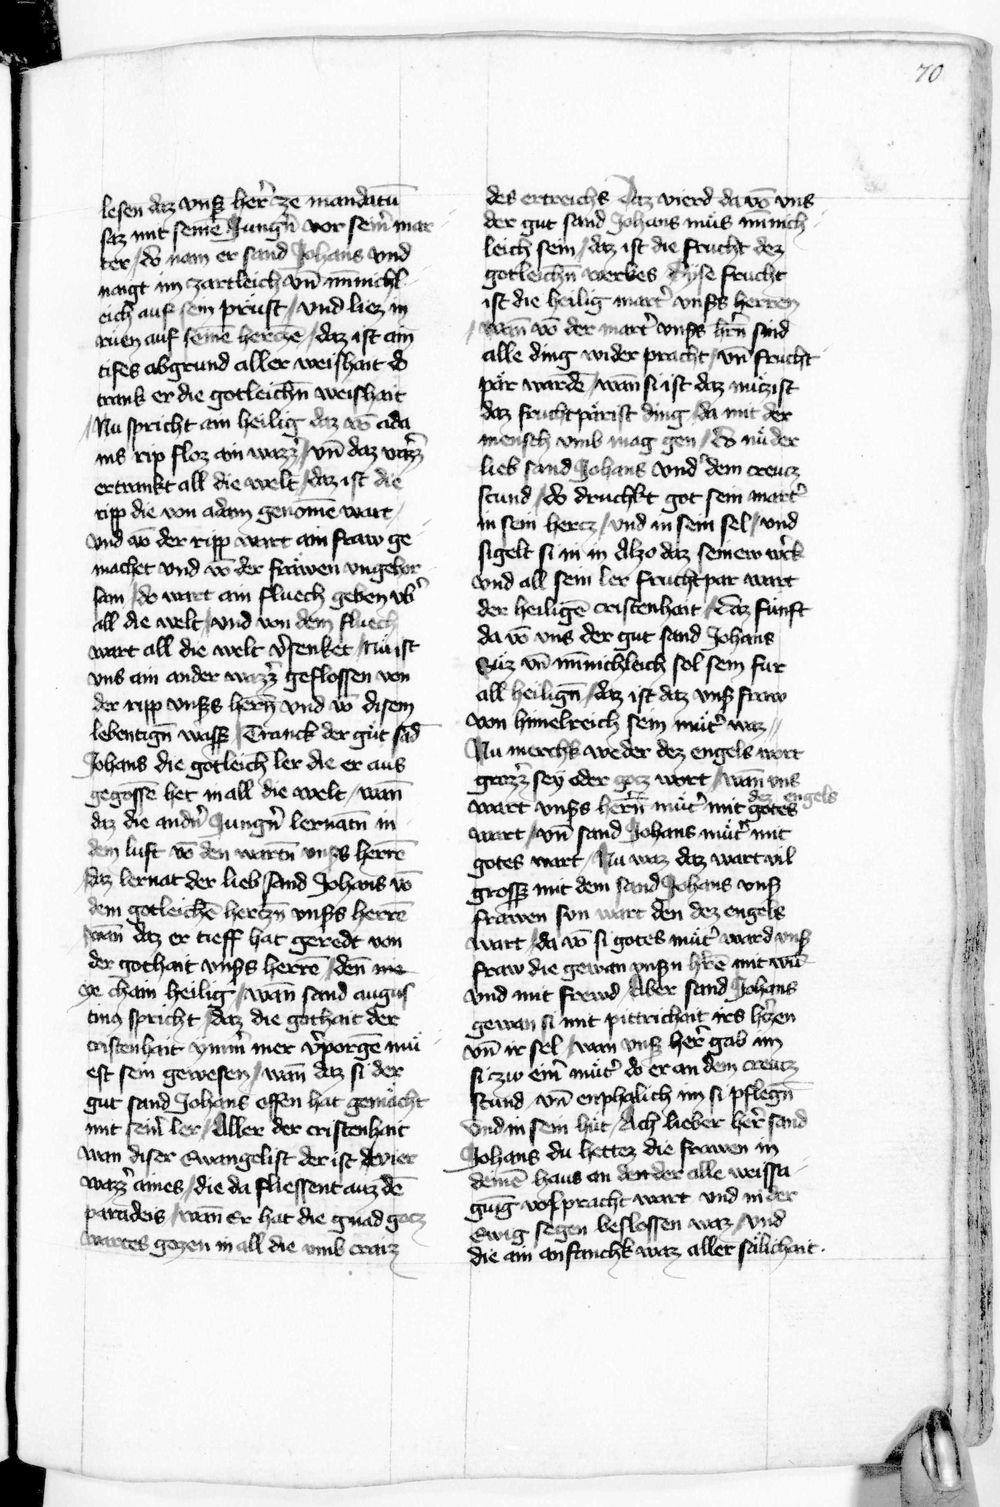 70
lesen daz vnsꝫ her̄ ze mandatū
saz mit seinē Jungn̄ vor seiner mar
ter / do nam er sand Johans vnd
naigt im zartleich vn̄ mīnichl
eich auf sein prüst / vnd liez in
rüen auf seinē herczē / daz ist ain
tifes abgrund aller weishait do
trank er die gotleichn̄ weishait
/ Nu spricht ain heilig daz vō ada
ms rip floz ain wazzꝰ / vn̄ daz wazzꝰ
ertrankt all die welt / daz ist die
ripp die von adam genomē wart /
vnd vō der ripp wart ain fraw ge
machet vnd vō der frawen vngehor
sam / do wart ain fluech geben vbꝰ
all die welt / vnd von dem fluech
wart all die welt vꝰsenket / Nu ist
vns ain ander wazzꝰ geflossen von
der ripp vnsꝫs hern̄ vnd vō disem
lebentign̄ wassꝰ / Tranck der gut sād
Johans die gotleich ler die er aus
gegossē het in all die welt / wān
daz die andn̄ Jungn̄ lernatn̄ in
dem luft vō den wartn̄ vnsꝫs herrē
/ daz lernat der lieb sand Johans vō
dem gotleichē herczn̄ vnsꝫs herrē
wān daz er tieff hat geredt von
der gothait vnsꝫs herrē / den̄ me
ye chain heilig / wān sand augus
tinꝰ spricht / daz die gothait der
cristenhait ymmꝰ mer vꝰporgē mü
est sein gewesen / wān daz si der
gut sand Johans offen hat gemacht
mit seinꝰ ler / Aller der cristenhait
wan diser Ewangelist der ist dˢ vier
wazzꝰ aines / die da fliessent auz dē
paradeis / wān Er hat die gnad gotz
wartes gozen in all die vmb craiz
des ertreichs Daz vierd da vō vns
der gut sand Johans müs mīnich
leich sein / daz ist die frucht dez
gotleichn̄ werkes Dise frucht
ist die heilig martꝰ vnsꝫs herren
/ wān vō der martꝰ vnsꝫs hrn̄ sind
alle ding wider pracht / vn̄ frucht
pär warde / wān si ist daz nüczist
daz fruchtpärist ding / da mit der
mensch vmb mag gen / Do nü der
lieb sand Johans vnd dem creucz
stund / do druchkt got sein martꝰ
in sein hercz / vnd in sein sel / vnd
sigelt si in in Alzo daz seinew wˢk
vnd all sein ler fruchtpar wart
der heiligē cristenhait / Daz fünft
da vō vns der gut sand Johans
süz vn̄ mīnichleich sol sein fur
all heilign̄ / daz ist daz vnsꝫ fraw
von himelreich sein mütꝰ waz //
Nu merchk weder dez engels wort
grozzꝰ sey oder gotz wort / wān vns
wart vnsꝫs hern̄ mütꝰ mit gotes dez engels
wart / vn̄ sand Johans mütꝰ mit
gotes wart / Nu waz daz wart vil
grossꝰ mit dem sand Johans vnsꝫ
frawen sun wart den dez engels
wart / da vō si gotes mütꝰ ward vnsꝫ
fraw die gewan vnsꝫn hrē mit wū
vnd mit frewd / Aber sand Johans
gewan si mit pittrichait irs hꝰzen
vn̄ ir sel / wan vnsꝫ herꝰ gab im
si zw einꝰ mütꝰ do er an dem creucz
stund / vn̄ enphalich im si pflegn̄
vnd in sein hüt / Ach lieber herꝰ sand
Johans du hettez die frawen in
deinē haus an den der alle weissa
gūg volpracht wart vnd in der
Ewig segen beslossen waz / vnd
die ain anfanchk waz aller sälichait.